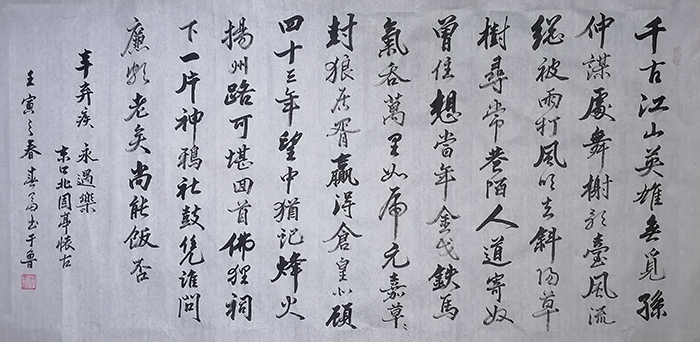 千古江山英雄無覓孫
仲謀處舞榭歌臺風流
總被雨打風吹去斜陽草
樹尋常巷陌人道寄奴
曾住想當年金戈鐵馬
氣吞萬里如虎元嘉草草
封狼居胥贏得倉皇北顧
四十三年望中猶記烽火
揚州路可堪回首佛狸祠
下一片神鴉社鼓凭誰問
廉頗老矣尚能飯否
辛弃疾 永遇樂
京口北固亭懷古
壬寅之春書于魯